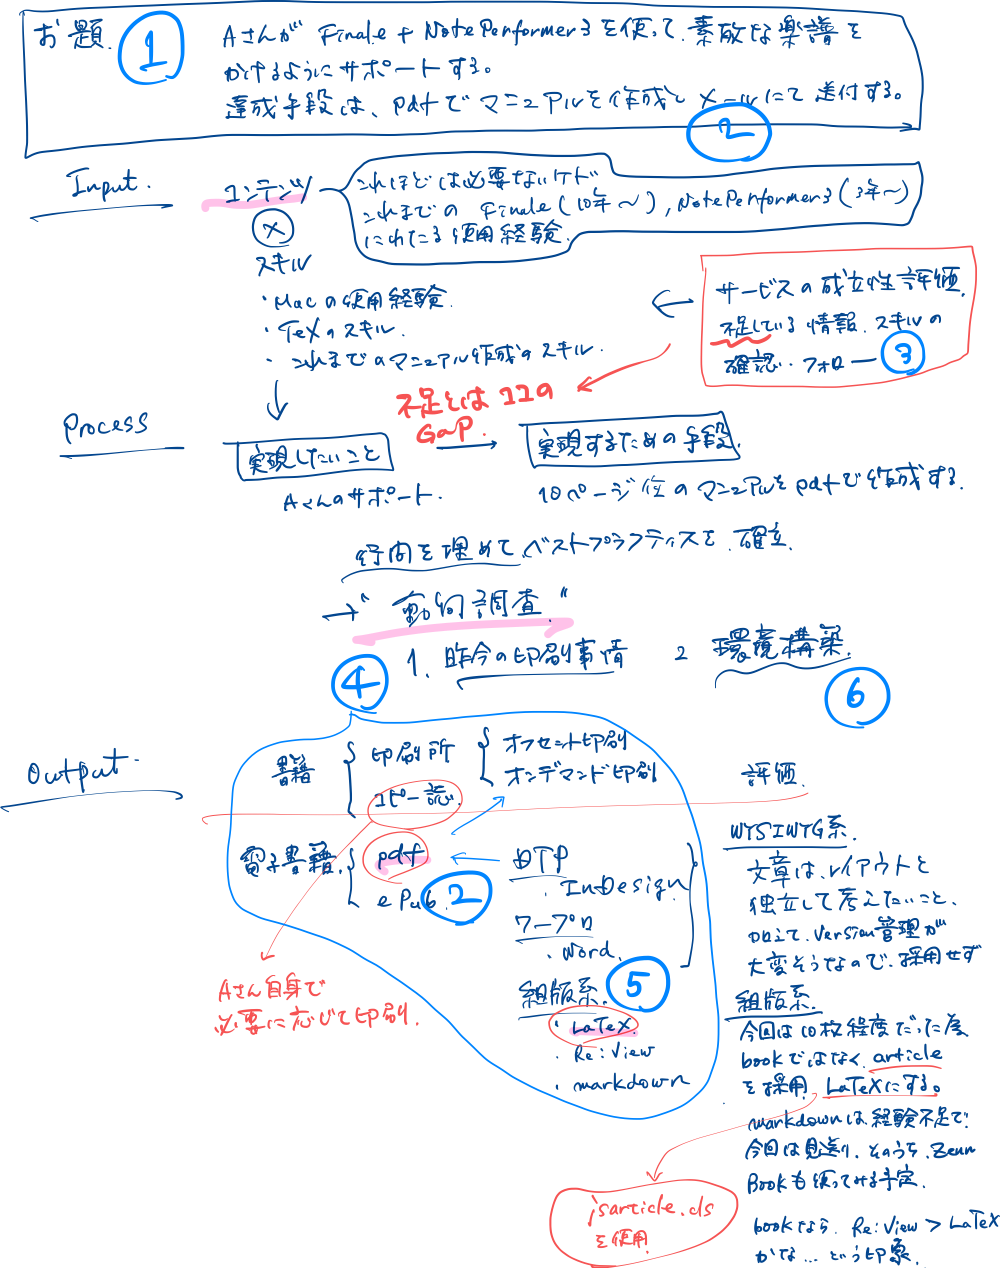 お題. ①
Aさんが Finale + NotePerformer3を使って、素敵な楽譜を
かけるようにサポートする。
達成手段は、pdfでマニュアルを作成し メールにて 送付する。
②
Input.
コンテンツ
これほどは必要ないケド
これまでの Finale (10年〜), NotePerformer3 (3年〜)
にわたる使用経験.
×
スキル
・Macの使用経験.
・TeXのスキル.
・これまでのマニュアル作成のスキル.
サービスの成立性評価.
不足している情報、スキルの
確認・フォロー ③
不足とはココの
GaP.
Process
実現したいこと
実現するための手段.
Aさんのサポート.
10ページ位のマニュアルをpdfで作成する.
行間を埋めて、ベストプラクティスを確立.
→"動向調査."
1. 昨今の印刷事情
2 環境構築.
④
⑥
Output.
書籍
印刷所
オフセット印刷
オンデマンド印刷
コピー誌.
電子書籍.
pdf
ePub.
②
DTP
・InDesign
ワープロ
・Word.
組版系. ⑤
・LaTeX.
・Re:View
・markdown
Aさん自身で
必要に応じて印刷.
評価.
WYSIWYG系.
文章は、レイアウトと
独立して考えたいこと、
加えて、Version管理が
大変そうなので、採用せず
組版系.
今回は10枚程度だった為
bookではなく、article
を採用. LaTeXにする。
markdownは、経験不足で.
今回は見送り. そのうち、Zenn
Bookも使ってみる予定.
bookなら、Re:View > LaTeX
かな... という印象.
jsarticle.cls
を使用.